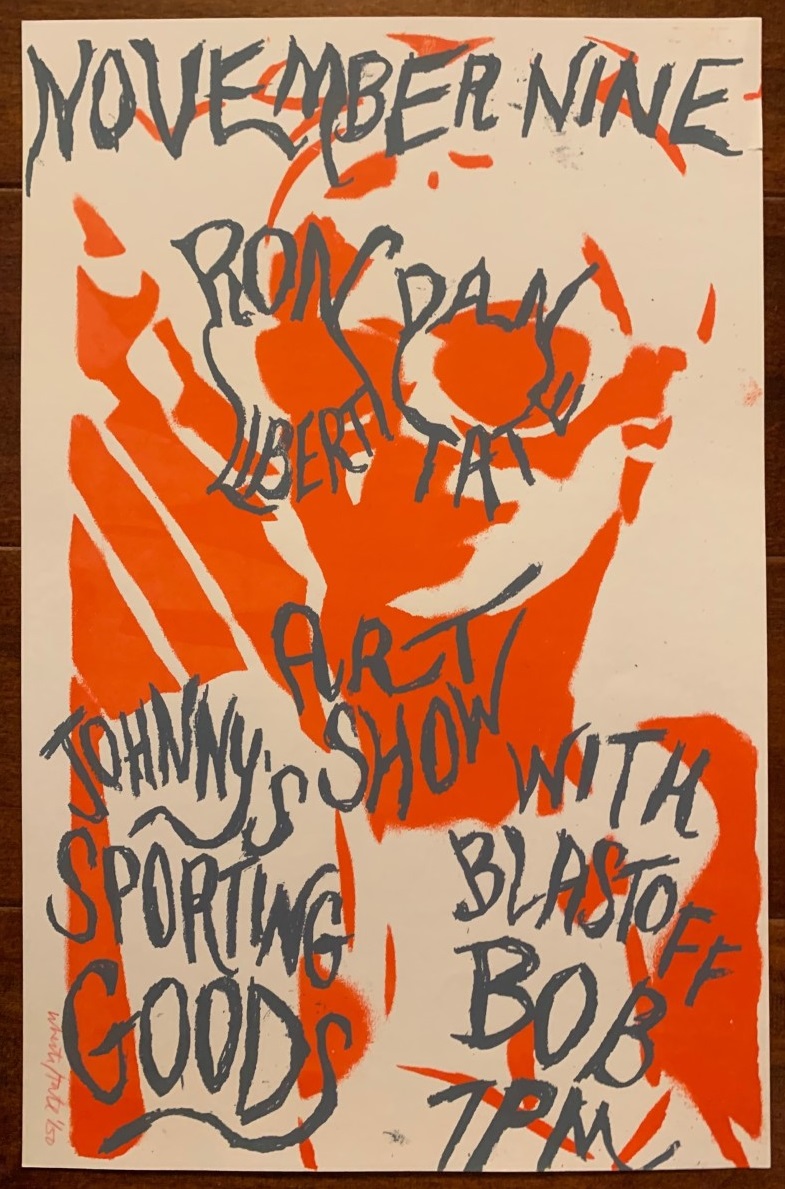 NOVEMBER NINE
RON LIBERTI
DAN TATE
ART SHOW
JOHNNY'S
SPORTING
GOODS
WITH
BLASTOFF
BOB
7PM